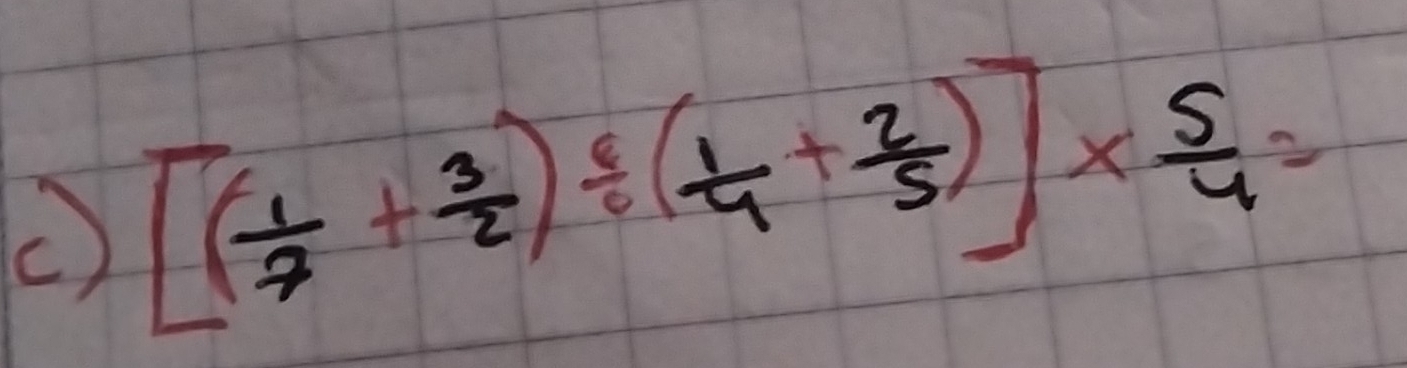 c) [(1/7 + 3/2) ÷ (1/4 + 2/5)] × 5/4 =